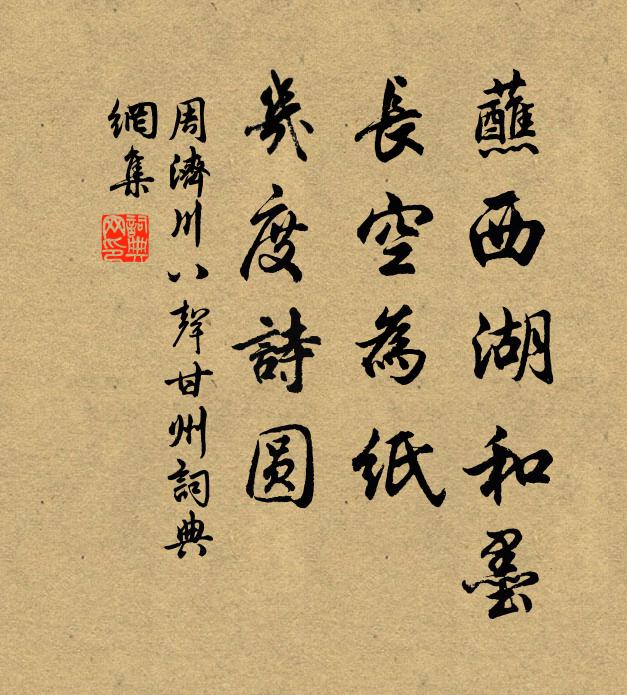 蘸西湖和墨
長空為紙
幾度詩圓
周濟川八聲甘州詞典
網集
詞典網印